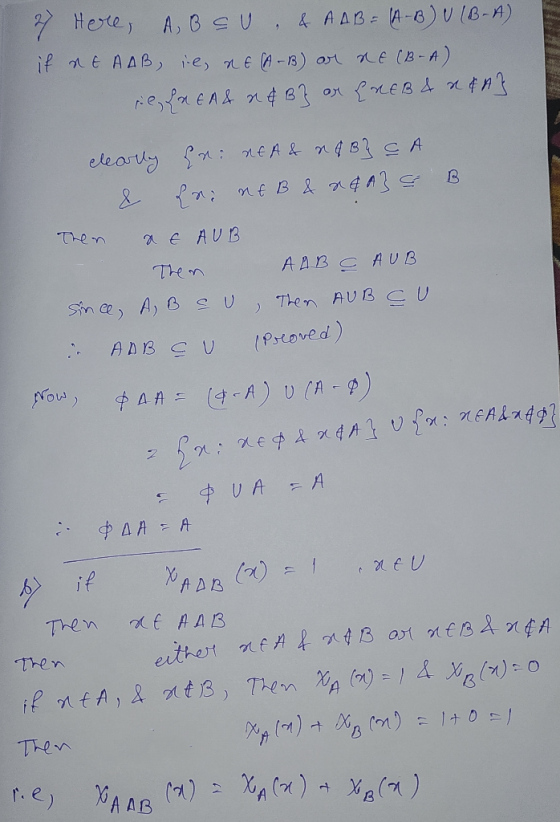 2) Here, A, B ⊆ U , & A∆B = (A-B) ∪ (B-A)
if x ∈ A∆B, i.e, x ∈ (A-B) or x ∈ (B-A)
i.e, {x ∈ A & x ∉ B} or {x ∈ B & x ∉ A}
clearly {x : x ∈ A & x ∉ B} ⊆ A
& {x : x ∈ B & x ∉ A} ⊆ B
Then x ∈ A∪B
Then A∆B ⊆ A∪B
Since, A, B ⊆ U , Then A∪B ⊆ U
∴ A∆B ⊆ U (Proved)
Now, φ∆A = (φ-A) ∪ (A-φ)
= {x : x ∈ φ & x ∉ A} ∪ {x : x ∈ A & x ∉ φ}
= φ ∪ A = A
∴ φ∆A = A
b) if χ_{A∆B} (x) = 1 , x ∈ U
Then x ∈ A∆B
Then either x ∈ A & x ∉ B or x ∈ B & x ∉ A
if x ∈ A, & x ∉ B, Then χ_A (x) = 1 & χ_B (x) = 0
Then χ_A (x) + χ_B (x) = 1+0 = 1
i.e, χ_{A∆B} (x) = χ_A (x) + χ_B (x)